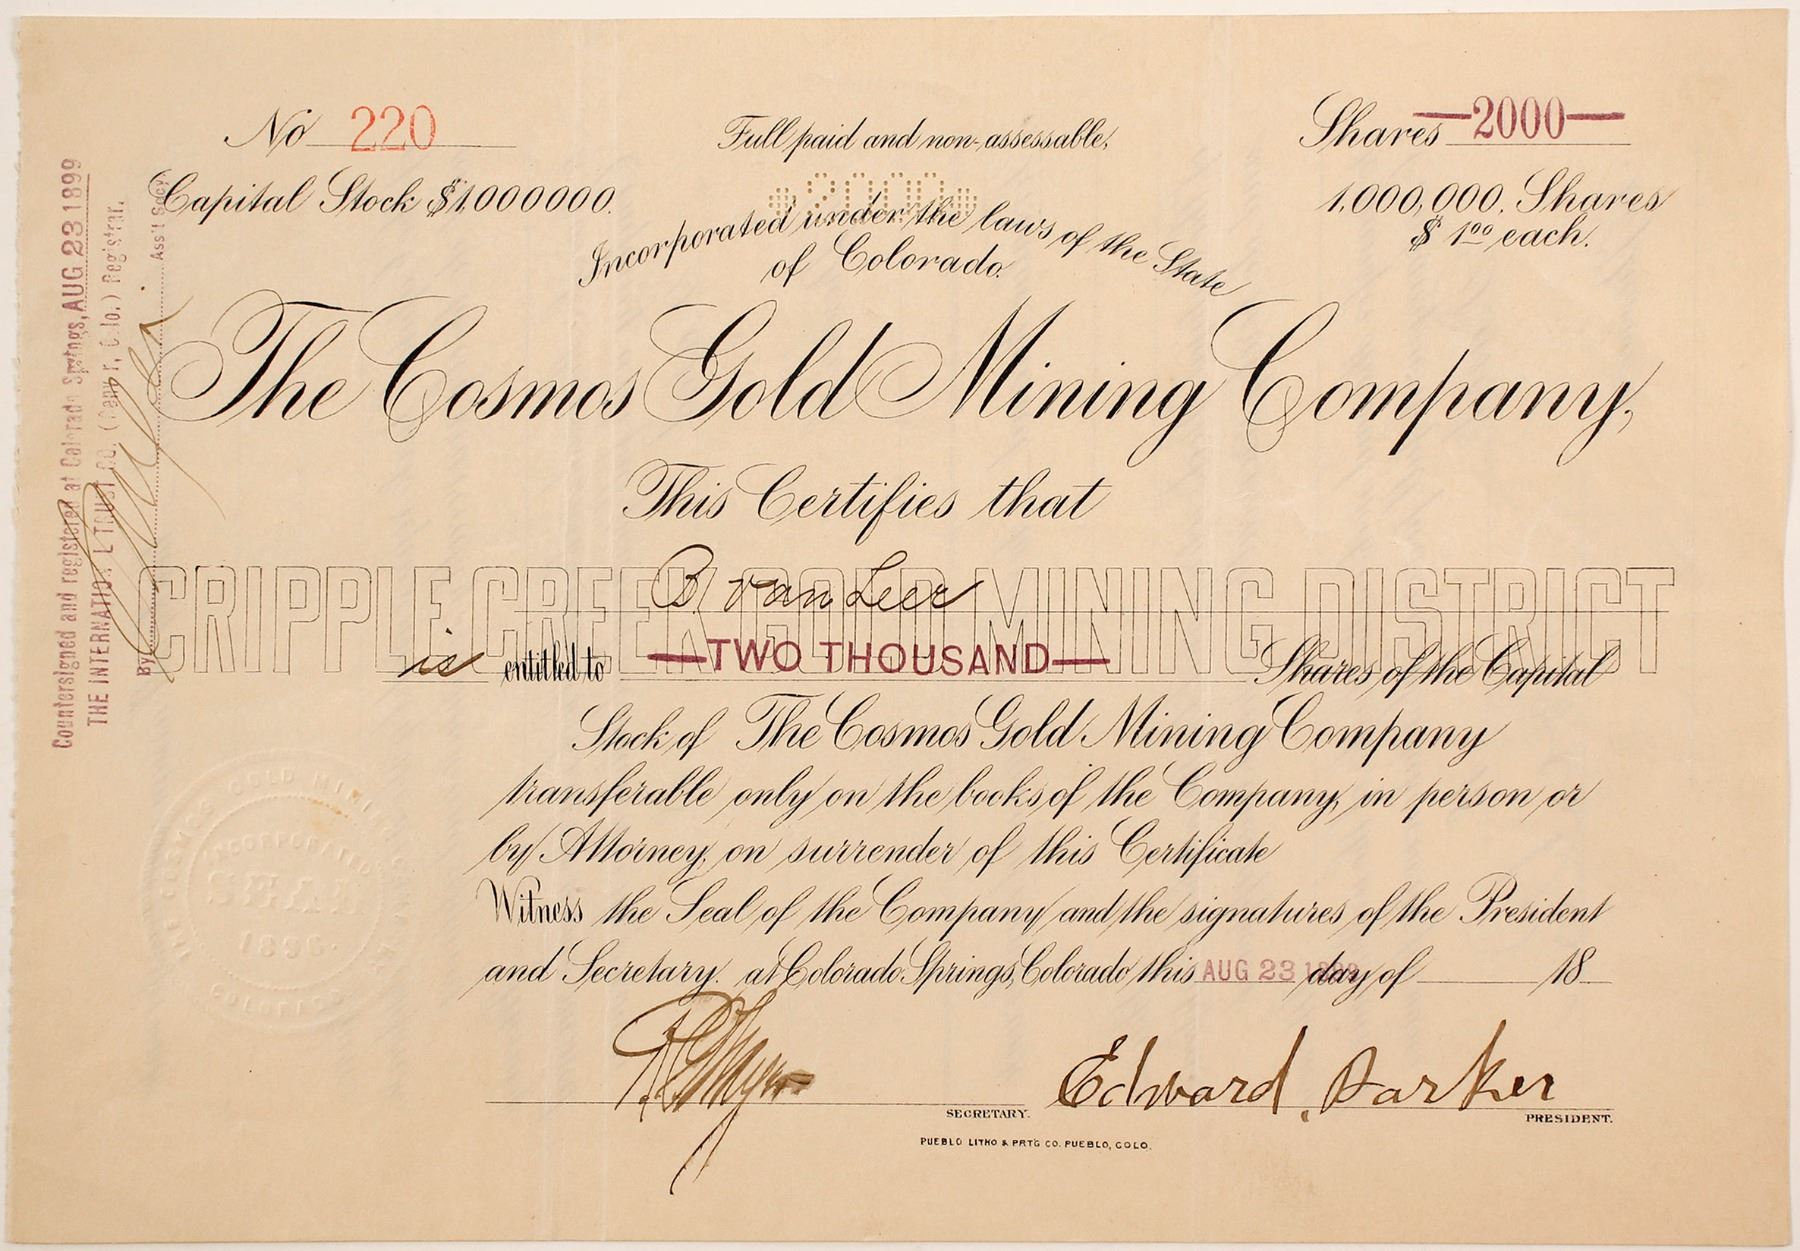 No 220
Full paid and non-assessable.
Shares —2000—
Capital Stock $1,000000.
2000
1,000,000. Shares
$1.00 each.
Incorporated under the laws of the State
of Colorado.
The Cosmos Gold Mining Company,
This Certifies that
CRIPPLE CREEK GOLD MINING DISTRICT
B van Leer
is entitled to —TWO THOUSAND— Shares of the Capital
Stock of The Cosmos Gold Mining Company
transferable only on the books of the Company, in person or
by Attorney, on surrender of this Certificate
Witness the Seal of the Company and the signatures of the President
and Secretary. at Colorado Springs, Colorado this AUG 23 1899 day of 18
SECRETARY.
Edward Parker
PRESIDENT.
PUEBLO LITHO & PRT'G CO. PUEBLO, COLO.
Countersigned and registered at Colorado Springs, AUG 23 1899
THE INTERNATIONAL TRUST CO. (Denver, Colo.) Registrar.
By Ass't Secy.
THE COSMOS GOLD MINING COMPANY
INCORPORATED
SEAL
1896.
COLORADO